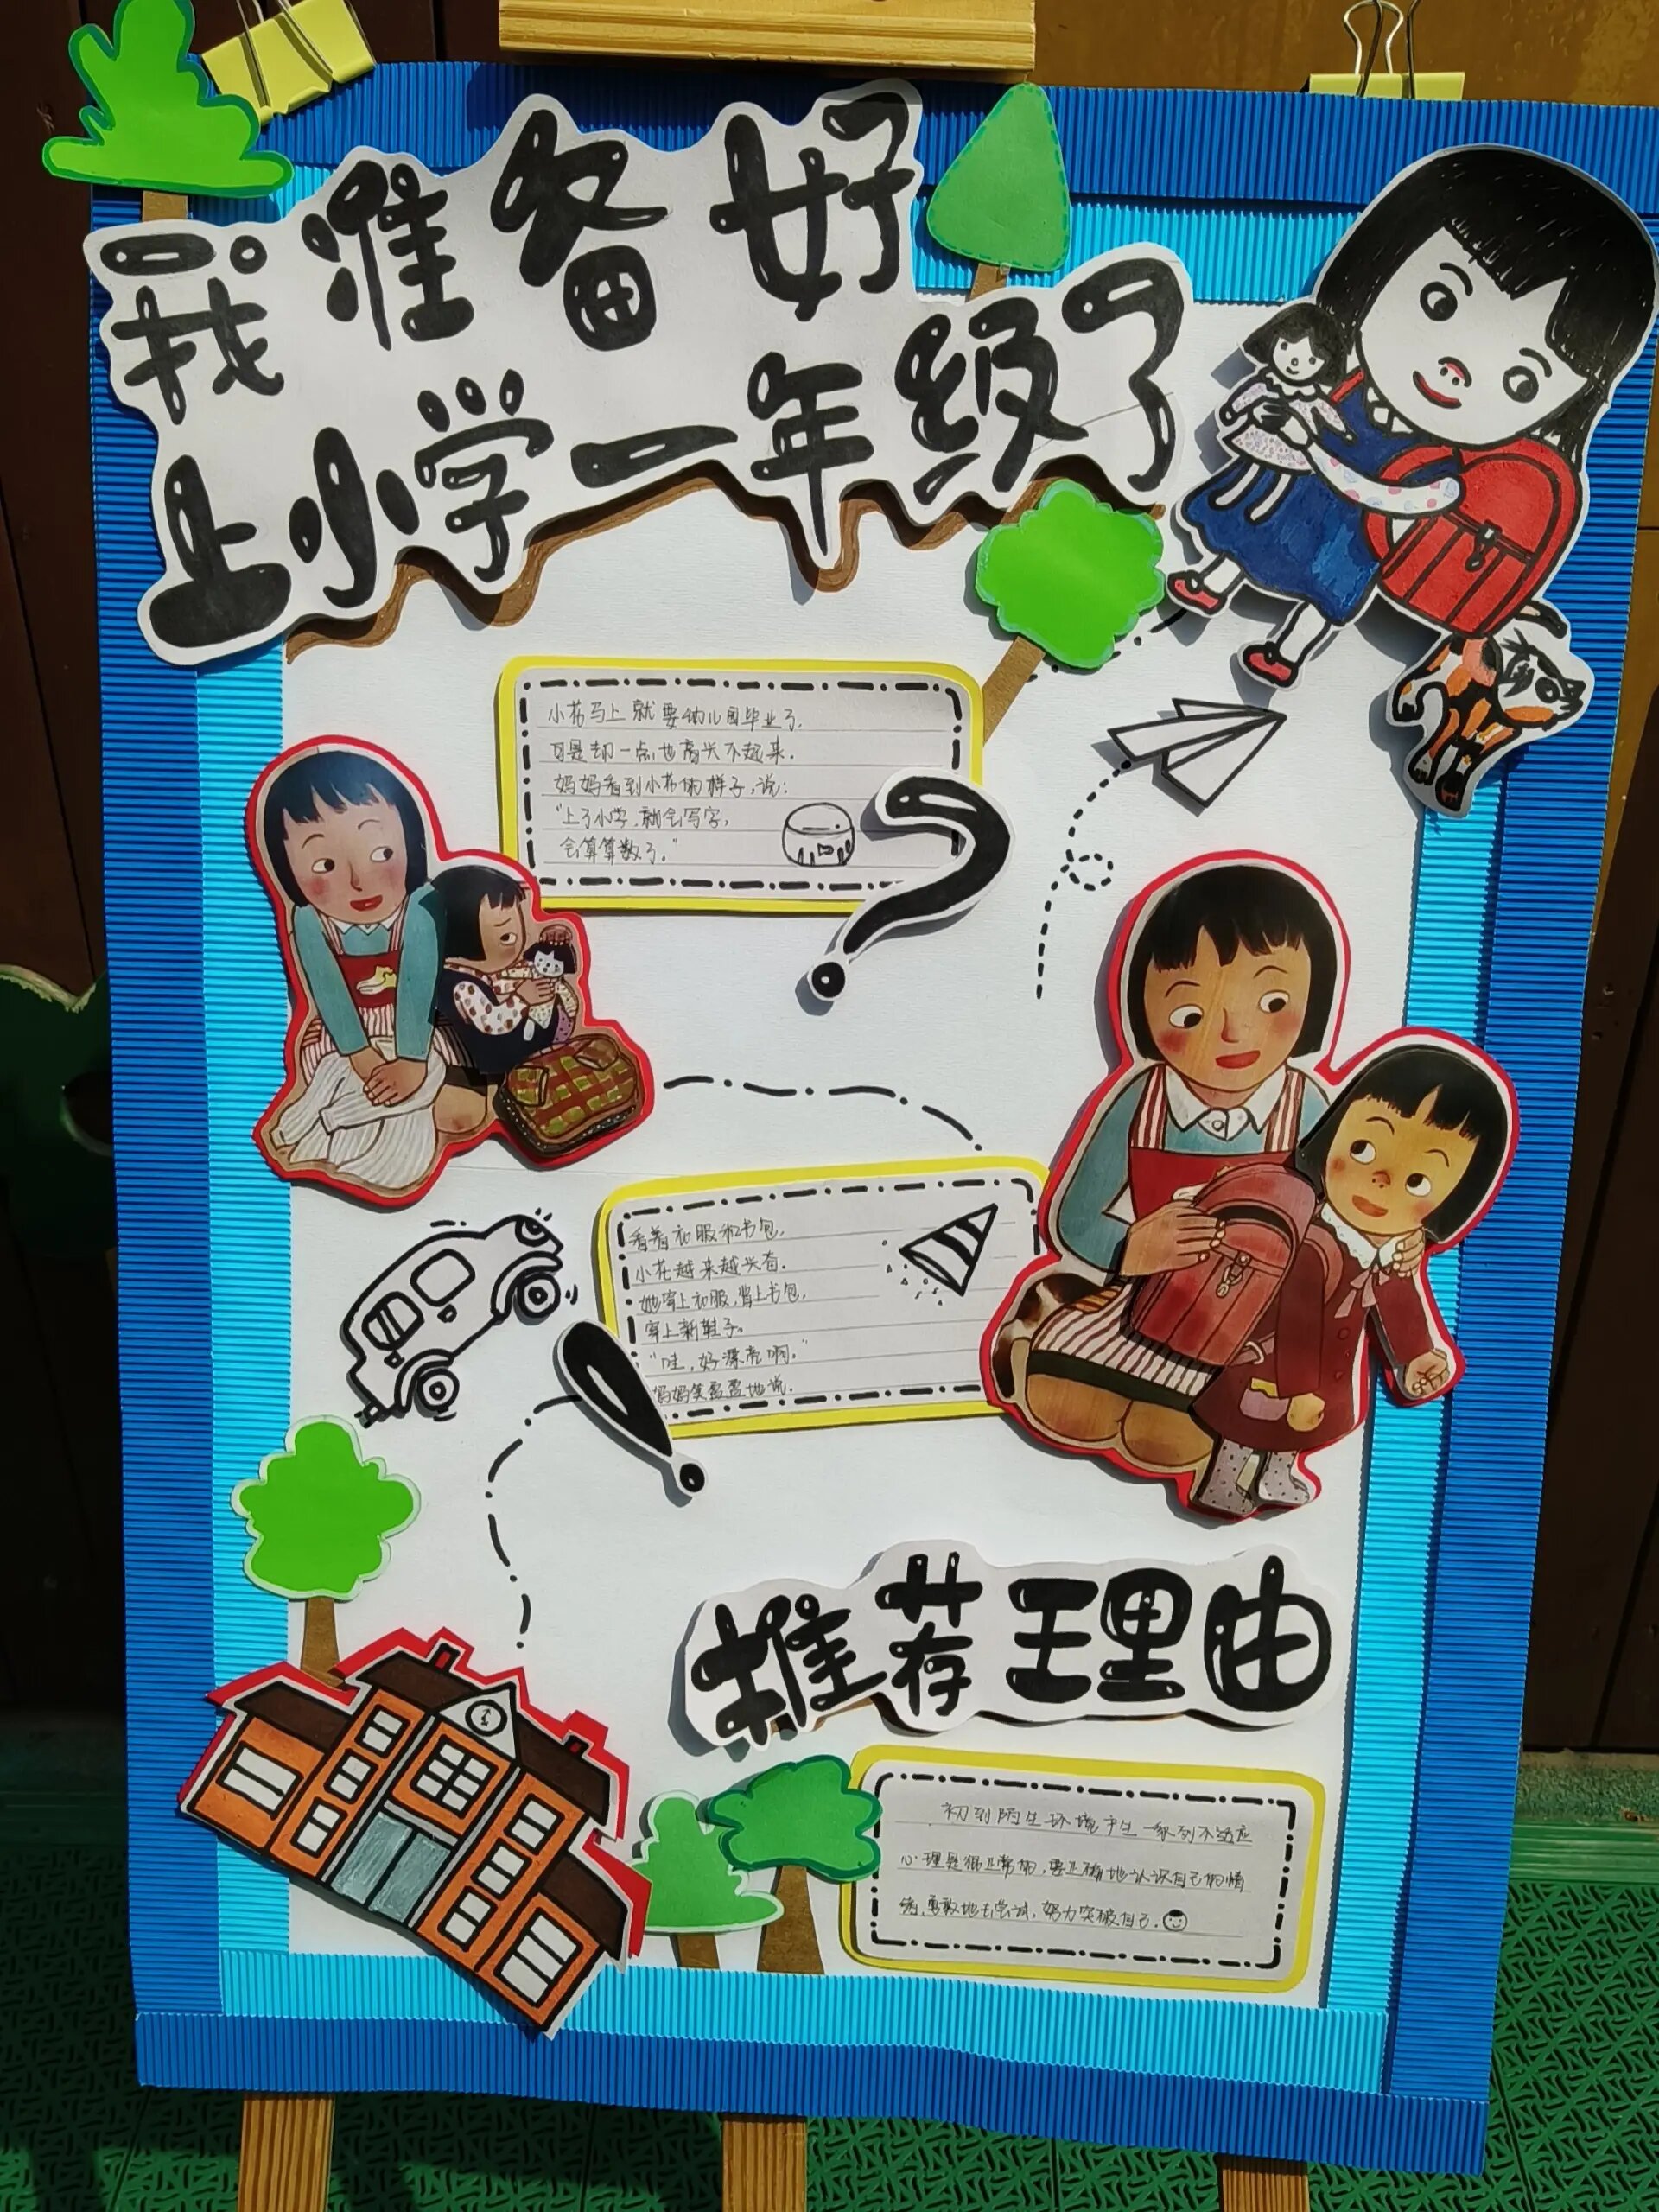 我准备好
上小学一年级了
小花马上就要幼儿园毕业了，
可是却一点也高兴不起来．
妈妈看到小花的样子，说：
“上了小学，就会写字，
会算算数了。”
看着衣服和书包，
小花越来越兴奋．
她穿上衣服，背上书包，
穿上新鞋子。
“哇，好漂亮啊，”
妈妈笑盈盈地说．
推荐理由
初到陌生环境产生一系列不适应
心理是很正常的，要正确地认识自己的情
绪，勇敢地去尝试，努力突破自己．